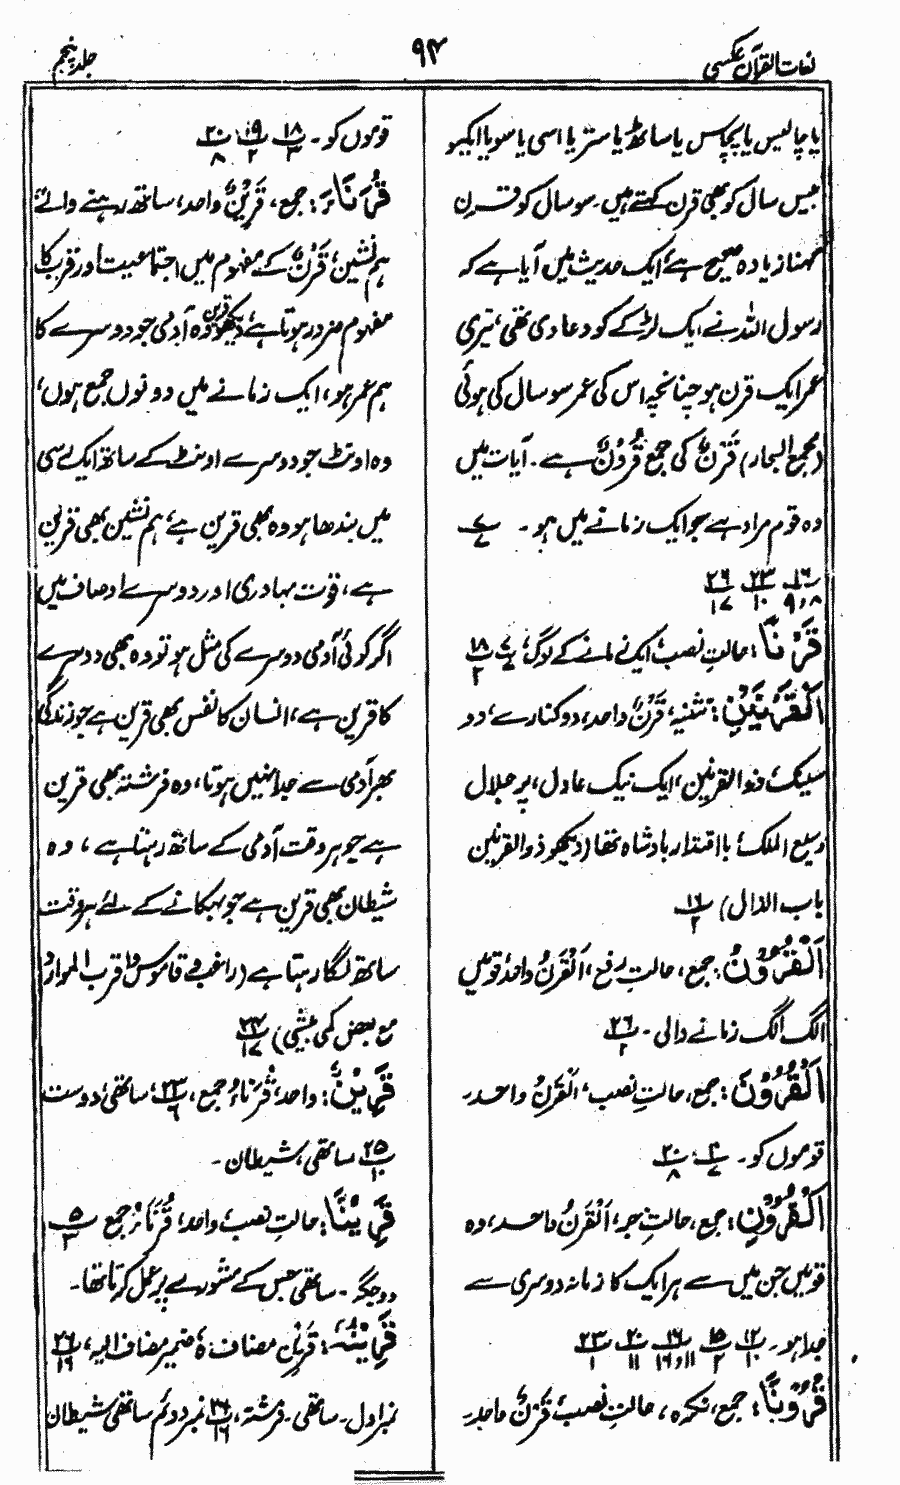 لغات القرآن عکسی
۹۴
جلد پنجم
یا چالیس یا پچاس یا ساٹھ یا ستر یا اسی یا سو یا ایکسو
بیس سال کو بھی قرن کہتے ہیں۔ سو سال کو قرن
کہنا زیادہ صحیح ہے، ایک حدیث میں آیا ہے کہ
رسول اللہ نے ایک لڑکے کو دعا دی تھی، تیری
عمر ایک قرن ہو چنانچہ اس کی عمر سو سال کی ہوئی
(مجمع البحار) قَرْنٌ کی جمع قُرُوْنٌ ہے۔ آیات میں
وہ قوم مراد ہے جو ایک زمانے میں ہو۔ پ۷
پ۱۶ ۸،۹ پ۲۳ ۱۰ پ۲۶ ۱۷
قَرْنًا: حالتِ نصب، ایک زمانے کے لوگ، پ۷ پ۱۸ ۲
اَلْقَرْنَیْنِ: تثنیہ، قَرْنٌ واحد، دو کنارے، دو
سینگ، ذوالقرنین، ایک نیک عادل، پر جلال
وسیع الملک، با اقتدار بادشاہ تھا (دیکھو ذوالقرنین
باب الذال) پ۱۶ ۲
اَلْقُرُوْنُ: جمع، حالتِ رفع، اَلْقَرْنُ واحد، قومیں
الگ الگ زمانے والی۔ پ۲۶ ۲
اَلْقُرُوْنَ: جمع، حالتِ نصب، اَلْقَرْنُ واحد۔
قوموں کو۔ پ۲۰ ۸
اَلْقُرُوْنِ: جمع، حالتِ جر، اَلْقَرْنُ واحد، وہ
قومیں جن میں سے ہر ایک کا زمانہ دوسری سے
جدا ہو۔ پ۱۲ ۱۰ پ۱۵ ۲ پ۱۶ ۱۱،۱۶ پ۲۰ ۱۱ پ۲۳ ۱
قُرُوْنًا: جمع، نکرہ، حالتِ نصب، قَرْنٌ واحد۔
قوموں کو۔ پ۱۸ ۳ پ۱۹ ۲ پ۲۰ ۸
قُرَنَاءَ: جمع، قَرِیْنٌ واحد، ساتھ رہنے والے،
ہم نشین، قَرْنٌ کے مفہوم میں اجتماعیت اور قرب کا
مفہوم ضرور ہوتا ہے، دیکھو قرن وہ آدمی جو دوسرے کا
ہم عمر ہو، ایک زمانے میں دونوں جمع ہوں،
وہ اونٹ جو دوسرے اونٹ کے ساتھ ایک رسی
میں بندھا ہو وہ بھی قرین ہے، ہم نشین بھی قرین
ہے، قوت بہادری اور دوسرے اوصاف میں
اگر کوئی آدمی دوسرے کی مثل ہو تو وہ بھی دوسرے
کا قرین ہے، انسان کا نفس بھی قرین ہے جو زندگی
بھر آدمی سے جدا نہیں ہوتا، وہ فرشتہ بھی قرین
ہے جو ہر وقت آدمی کے ساتھ رہتا ہے، وہ
شیطان بھی قرین ہے جو بہکانے کے لئے ہر وقت
ساتھ لگا رہتا ہے (راغب و قاموس و اقرب الموارد
مع بعض کمی بیشی) پ۲۴ ۱۷
قَرِیْنٌ: واحد، قُرَنَاءُ جمع، پ۲۳ ۶، ساتھی، دوست
پ۲۵ ۱۰ ساتھی، شیطان۔
قَرِیْنًا: حالتِ نصب، واحد، قُرَنَاءُ جمع پ۵ ۳
دو جگہ۔ ساتھی جس کے مشورے پر عمل کرتا تھا۔
قَرِیْنُہٗ: قَرِیْنُ مضاف ہٗ ضمیر مضاف الیہ، پ۲۶ ۱۶
نمبر اول۔ ساتھی۔ فرشتہ، پ۲۶ ۱۶ نمبر دوئم ساتھی شیطان